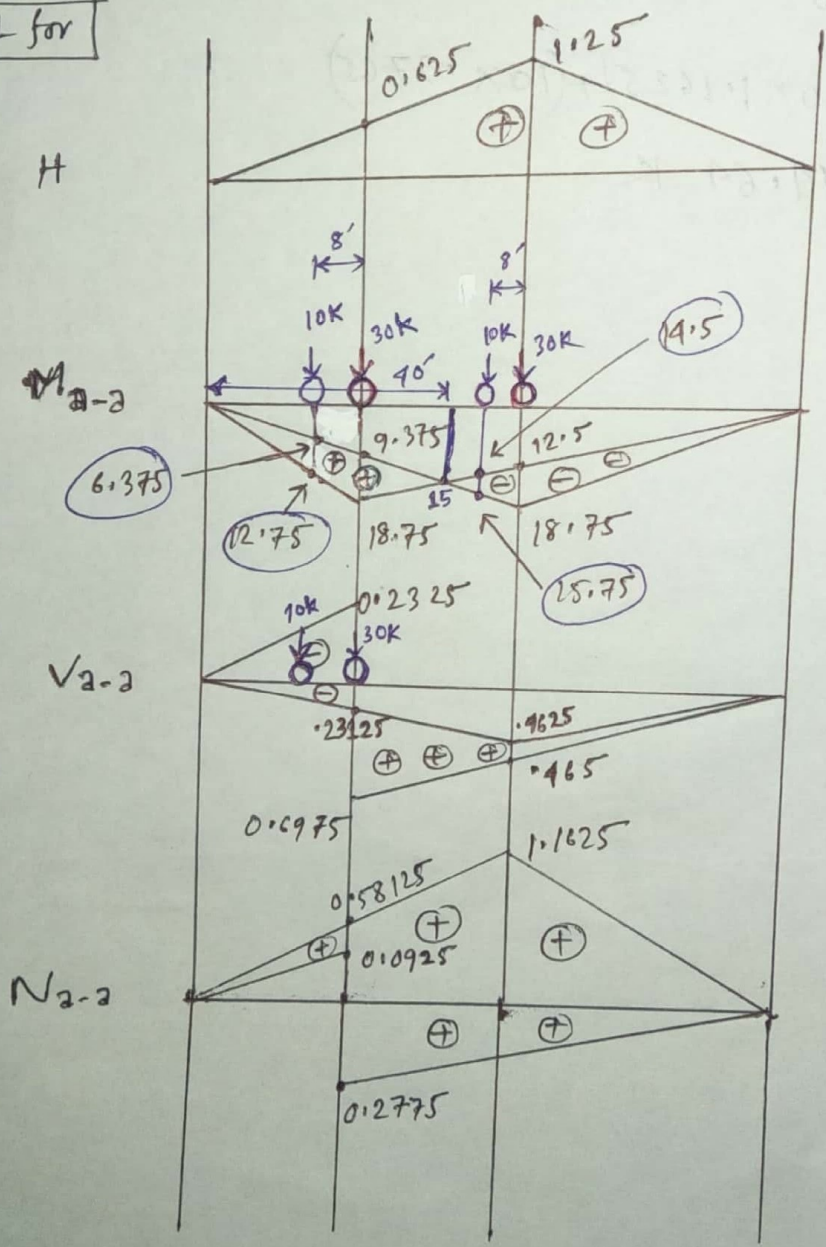 L for
0.625
1.25
+ +
H
8'
8'
10K
30K
10K
30K
14.5
40'
Ma-a
9.375
12.5
+ + - - -
6.375
15
12.75
18.75
18.75
15.75
0.2325
10K
30K
-
Va-a
-
.23125
.4625
+ + +
.465
0.6975
1.1625
0.58125
+ + +
0.0925
Na-a
+ +
0.2775